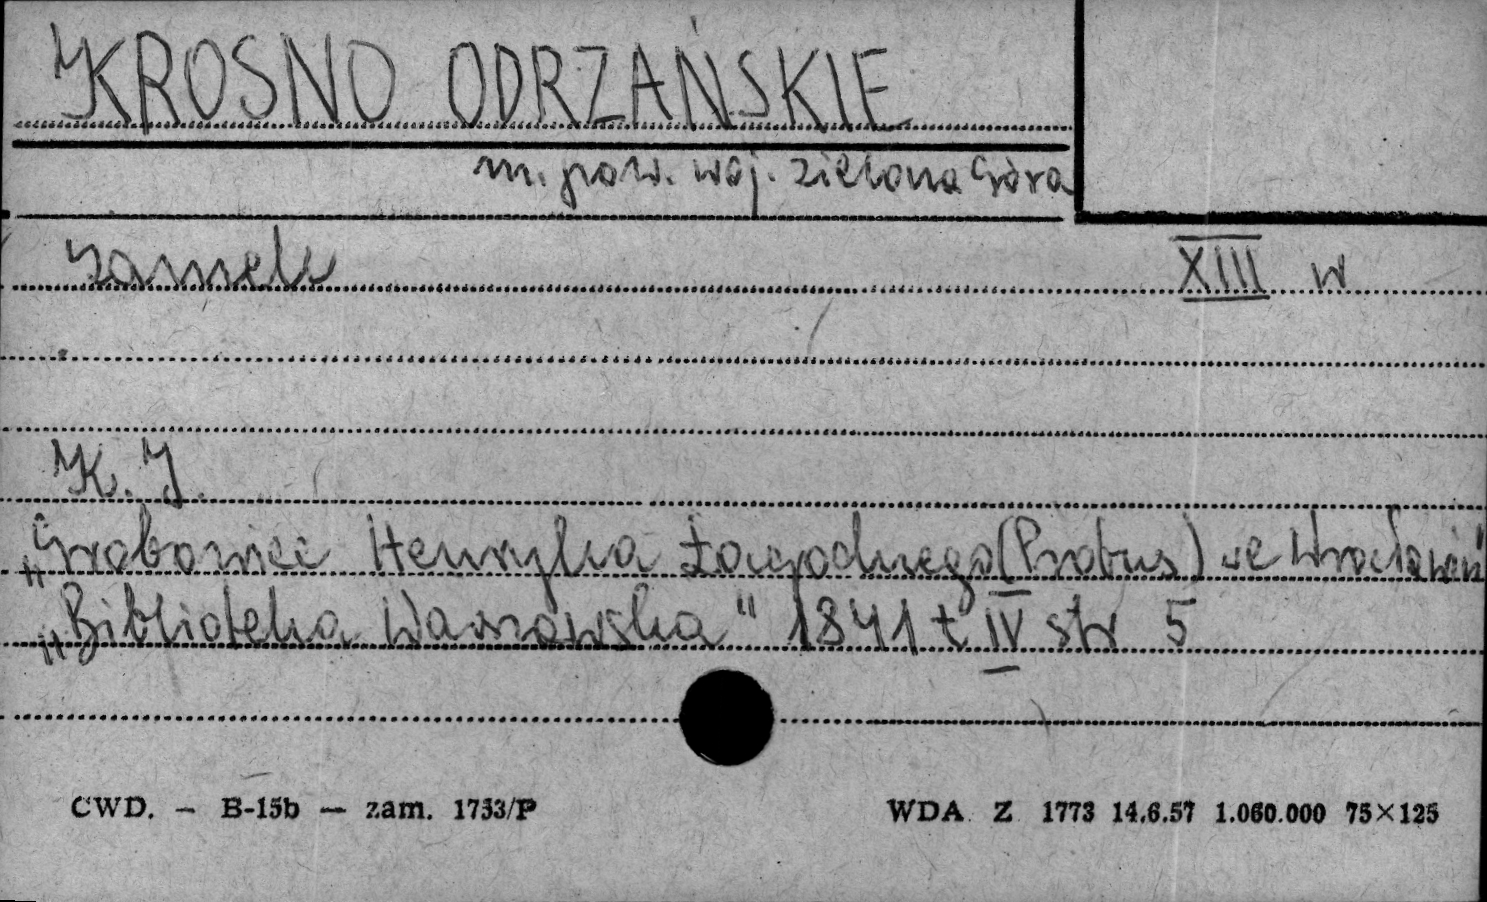 KROSNO ODRZAŃSKIE
m. pow. woj. Zielona Góra
zamek XIII w
K. J.
„Grobowiec Henryka Łagodnego (Probus) we Wrocławiu"
„Biblioteka Warszawska" 1841 t IV str 5
CWD. — B-15b — zam. 1753/P
WDA Z 1773 14.6.57 1.060.000 75×125